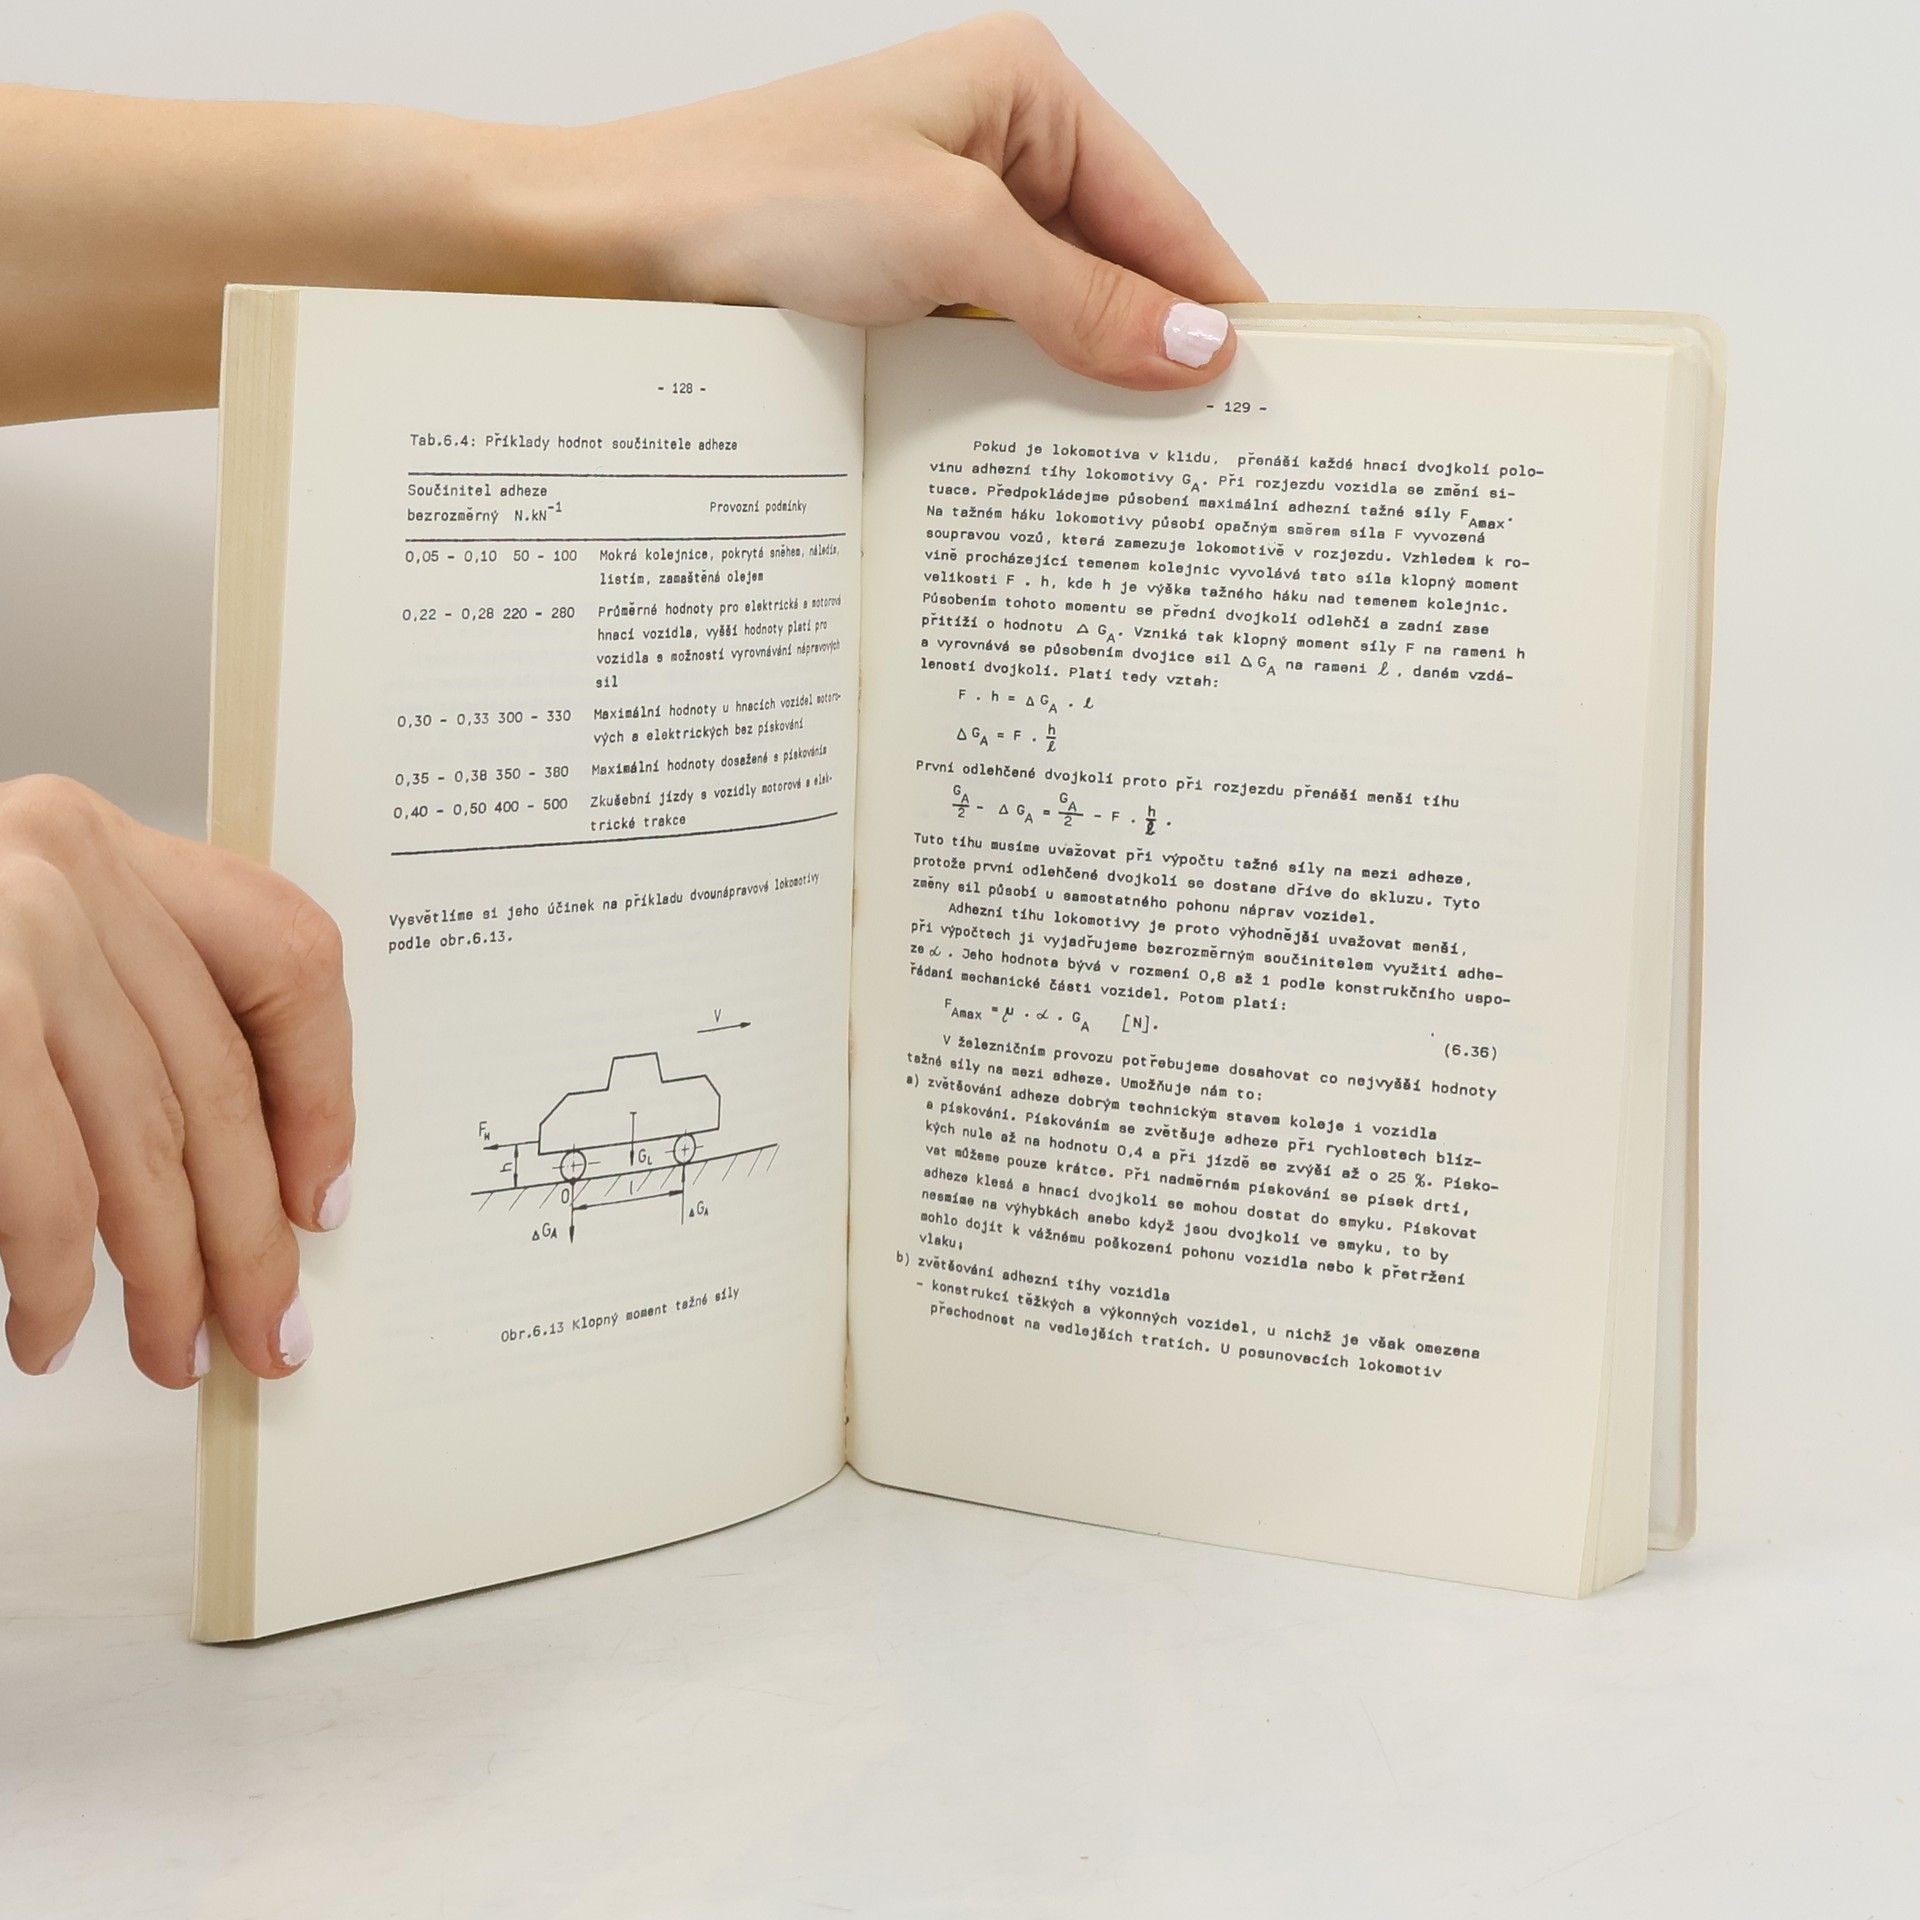 - 128 -
Tab.6.4: Příklady hodnot součinitele adheze
Součinitel adheze
bezrozměrný N.kN⁻¹
Provozní podmínky
0,05 - 0,10 50 - 100 Mokré kolejnice, pokryté sněhem, náledím,
listím, zamaštěné olejem
0,22 - 0,28 220 - 280 Průměrné hodnoty pro elektrická a motorová
hnací vozidla, vyšší hodnoty platí pro
vozidla s možností vyrovnávání nápravových
sil
0,30 - 0,33 300 - 330 Maximální hodnoty u hnacích vozidel motoro-
vých a elektrických bez pískování
0,35 - 0,38 350 - 380 Maximální hodnoty dosažené s pískováním
0,40 - 0,50 400 - 500 Zkušební jízdy s vozidly motorové a elek-
trické trakce
Vysvětlíme si jeho účinek na příkladu dvounápravové lokomotivy
podle obr.6.13.
V
F_H
h
G_L
O
l
Δ G_A
Δ G_A
Obr.6.13 Klopný moment tažné síly
- 129 -
Pokud je lokomotiva v klidu, přenáší každé hnací dvojkolí polo-
vinu adhezní tíhy lokomotivy G_A. Při rozjezdu vozidla se změní si-
tuace. Předpokládejme působení maximální adhezní tažné síly F_Amax.
Na tažném háku lokomotivy působí opačným směrem síla F vyvozená
soupravou vozů, která zamezuje lokomotivě v rozjezdu. Vzhledem k ro-
vině procházející temenem kolejnic vyvolává tato síla klopný moment
velikosti F . h, kde h je výška tažného háku nad temenem kolejnic.
Působením tohoto momentu se přední dvojkolí odlehčí a zadní zase
přitíží o hodnotu Δ G_A. Vzniká tak klopný moment síly F na rameni h
a vyrovnává se působením dvojice sil Δ G_A na rameni ℓ, daném vzdá-
leností dvojkolí. Platí tedy vztah:
F . h = Δ G_A . ℓ
Δ G_A = F . h/ℓ
První odlehčené dvojkolí proto při rozjezdu přenáší menší tíhu
G_A/2 - Δ G_A = G_A/2 - F . h/ℓ .
Tuto tíhu musíme uvažovat při výpočtu tažné síly na mezi adheze,
protože první odlehčené dvojkolí se dostane dříve do skluzu. Tyto
změny sil působí u samostatného pohonu náprav vozidel.
Adhezní tíhu lokomotivy je proto výhodnější uvažovat menší,
při výpočtech ji vyjadřujeme bezrozměrným součinitelem využití adhe-
ze α . Jeho hodnota bývá v rozmení 0,8 až 1 podle konstrukčního uspo-
řádaní mechanické části vozidel. Potom platí:
F_Amax = μ . α . G_A [N].
(6.36)
V železničním provozu potřebujeme dosahovat co nejvyšší hodnoty
tažné síly na mezi adheze. Umožňuje nám to:
a) zvětšování adheze dobrým technickým stavem koleje i vozidla
a pískování. Pískováním se zvětšuje adheze při rychlostech blíz-
kých nule až na hodnotu 0,4 a při jízdě se zvýší až o 25 %. Písko-
vat můžeme pouze krátce. Při nadměrném pískování se písek drtí,
adheze klesá a hnací dvojkolí se mohou dostat do smyku. Pískovat
nesmíme na výhybkách anebo když jsou dvojkolí ve smyku, to by
mohlo dojít k vážnému poškození pohonu vozidla nebo k přetržení
vlaku;
b) zvětšování adhezní tíhy vozidla
- konstrukcí těžkých a výkonných vozidel, u nichž je však omezena
přechodnost na vedlejších tratích. U posunovacích lokomotiv